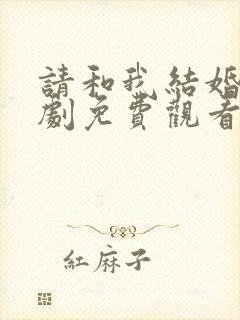 請和我結婚
劇免費觀看
紅麻子